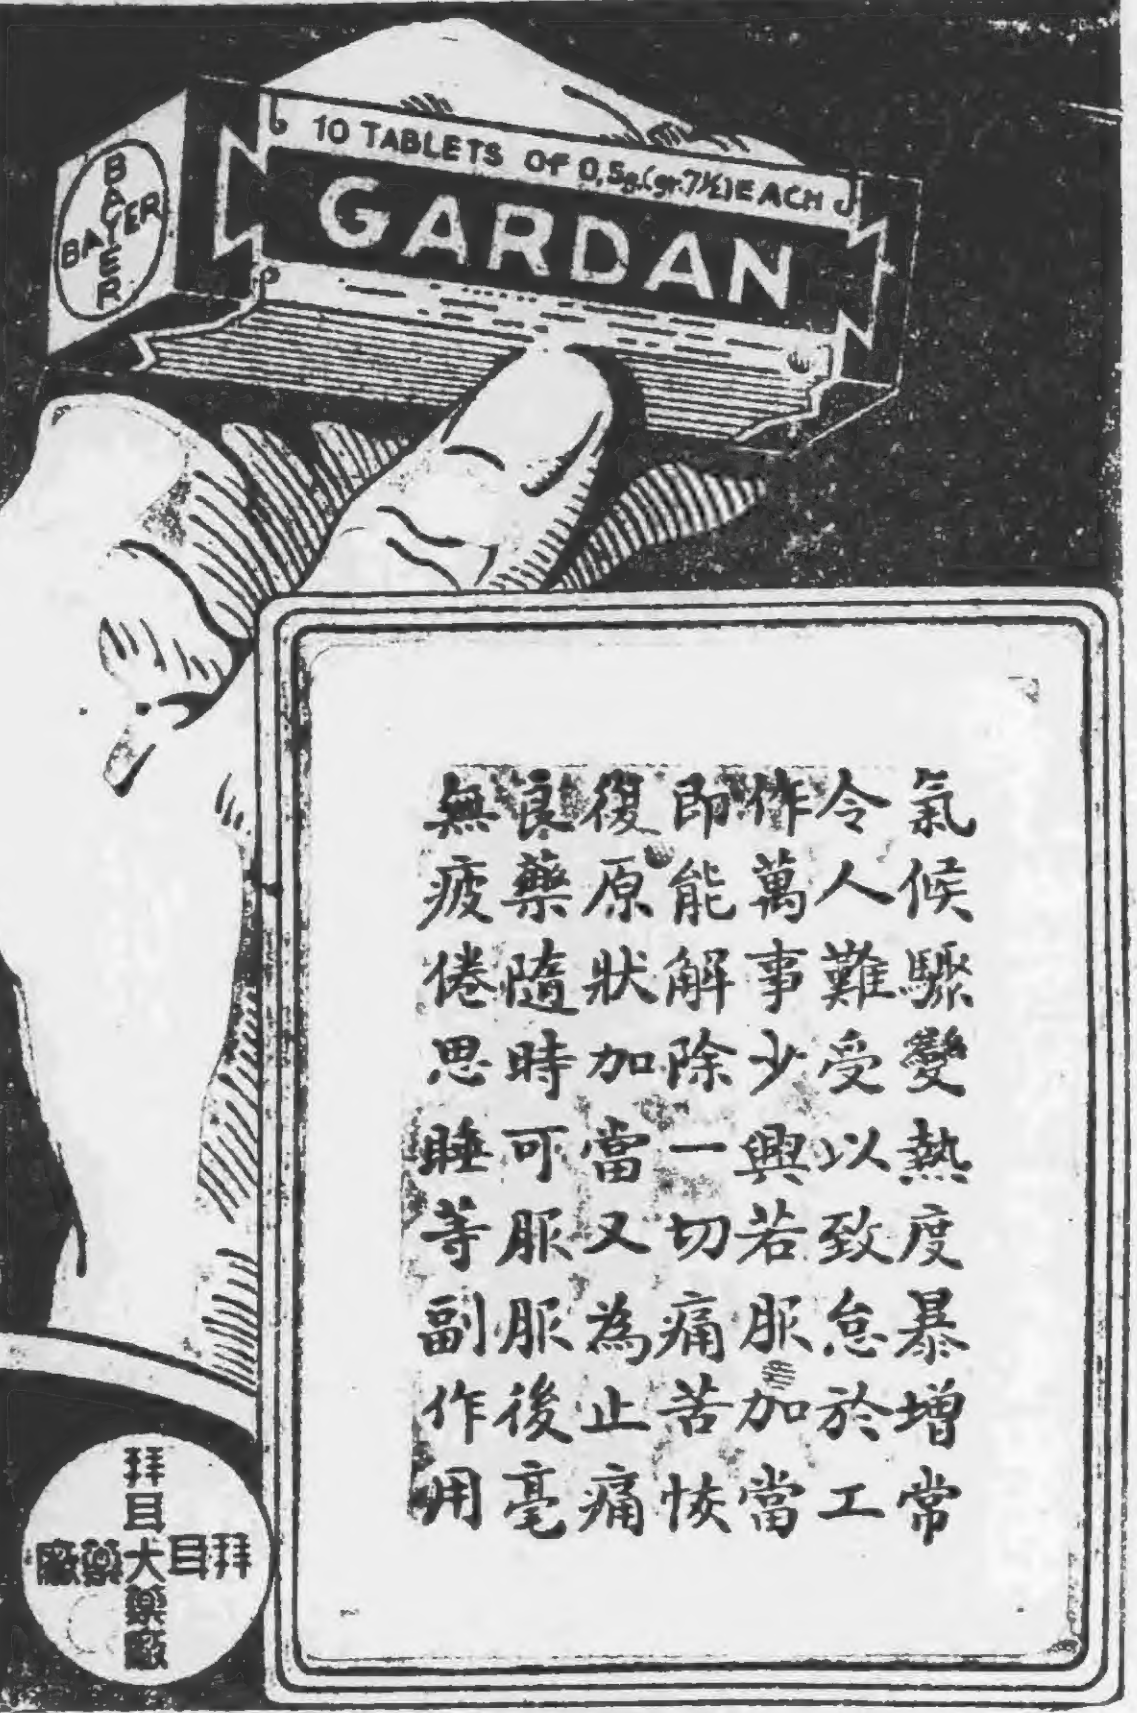 10 TABLETS OF 0,5g.(gr.7½)EACH
GARDAN
BAYER
BAYER
氣候驟變熱度暴增常
令人難受以致怠於工
作萬事少興若服加當
即能解除一切痛苦恢
復原狀加當又為止痛
良藥隨時可服服後毫
無疲倦思睡等副作用
拜耳大藥廠
拜耳大藥廠